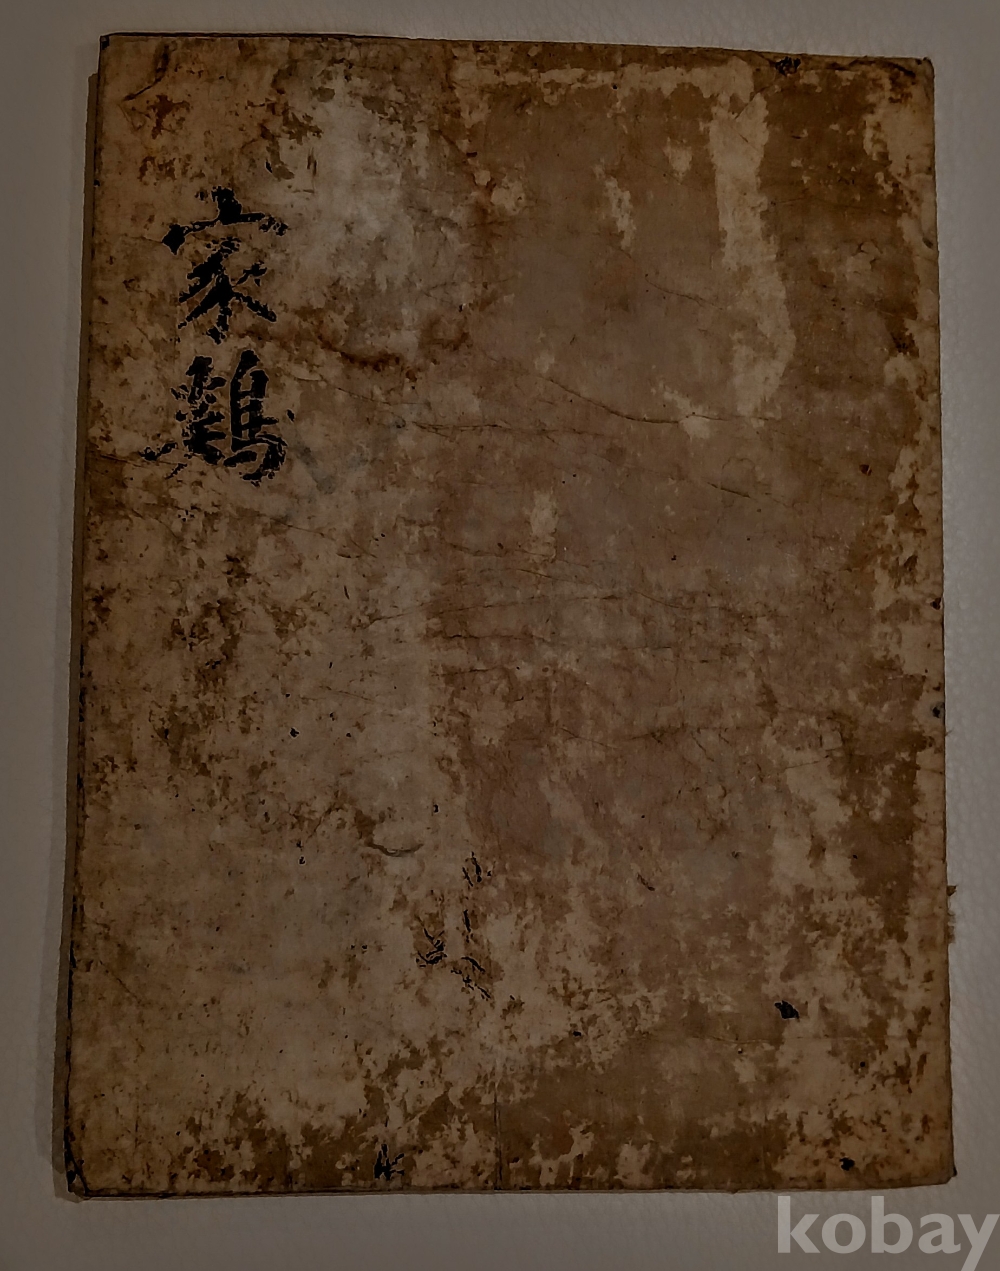 家鷄
kobay